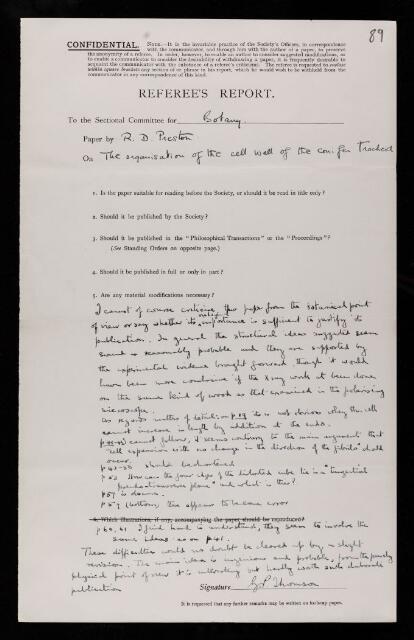 89
CONFIDENTIAL. NOTE.—It is the invariable practice of the Society's Officers, in correspondence
with the communicator, and through him with the author of a paper, to preserve
the anonymity of a referee. In order, however, to enable an author to consider suggested modifications, or
to enable a communicator to consider the desirability of withdrawing a paper, it is frequently desirable to
acquaint the communicator with the substance of a referee's criticisms. The referee is requested to enclose
within square brackets any section of or phrase in his report, which he would wish to be withheld from the
communicator or any correspondence of this kind.
REFEREE'S REPORT.
To the Sectional Committee for Botany
Paper by R. D. Preston
On The organisation of the cell wall of the conifer Tracheid
1. Is the paper suitable for reading before the Society, or should it be read in title only?
2. Should it be published by the Society?
3. Should it be published in the "Philosophical Transactions" or the "Proceedings"?
(See Standing Orders on opposite page.)
4. Should it be published in full or only in part?
5. Are any material modifications necessary?
I cannot of course criticise this paper from the botanical point
of view or say whether its importance is sufficient to justify its
publication. In general the structural ideas suggested seem
sound & reasonably probable and they are supported by
the experimental evidence brought forward, though it would
have been more conclusive if the X ray work had been done
on the same kind of wood as that examined in the polarising
microscope.
As regards matters of detail:- it is not obvious why the cell
cannot increase in length by addition at the ends.
cannot follow, it seems contrary to the main argument that
cell expansion with no change in the direction of the fibrils should
occur.
should be shortened
p 53 How can the four edges of the tube lie in a "tangential
plane" and which is this?
p 57 is
p 59 (bottom) this appears to be an error
6. Which illustrations, if any, accompanying the paper should be reproduced?
p 60, 61 I find hard to understand, they seem to involve the
same ideas as on p 41.
These difficulties would no doubt be cleared up by a slight
revision. The main idea is ingenious and probable, from the purely
physical point of view it is interesting but hardly worth such elaborate
publication
Signature G P Thomson
It is requested that any further remarks may be written on his/her pages.